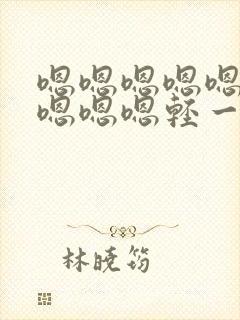 嗯嗯嗯嗯嗯
嗯嗯嗯轻一
林晓筠